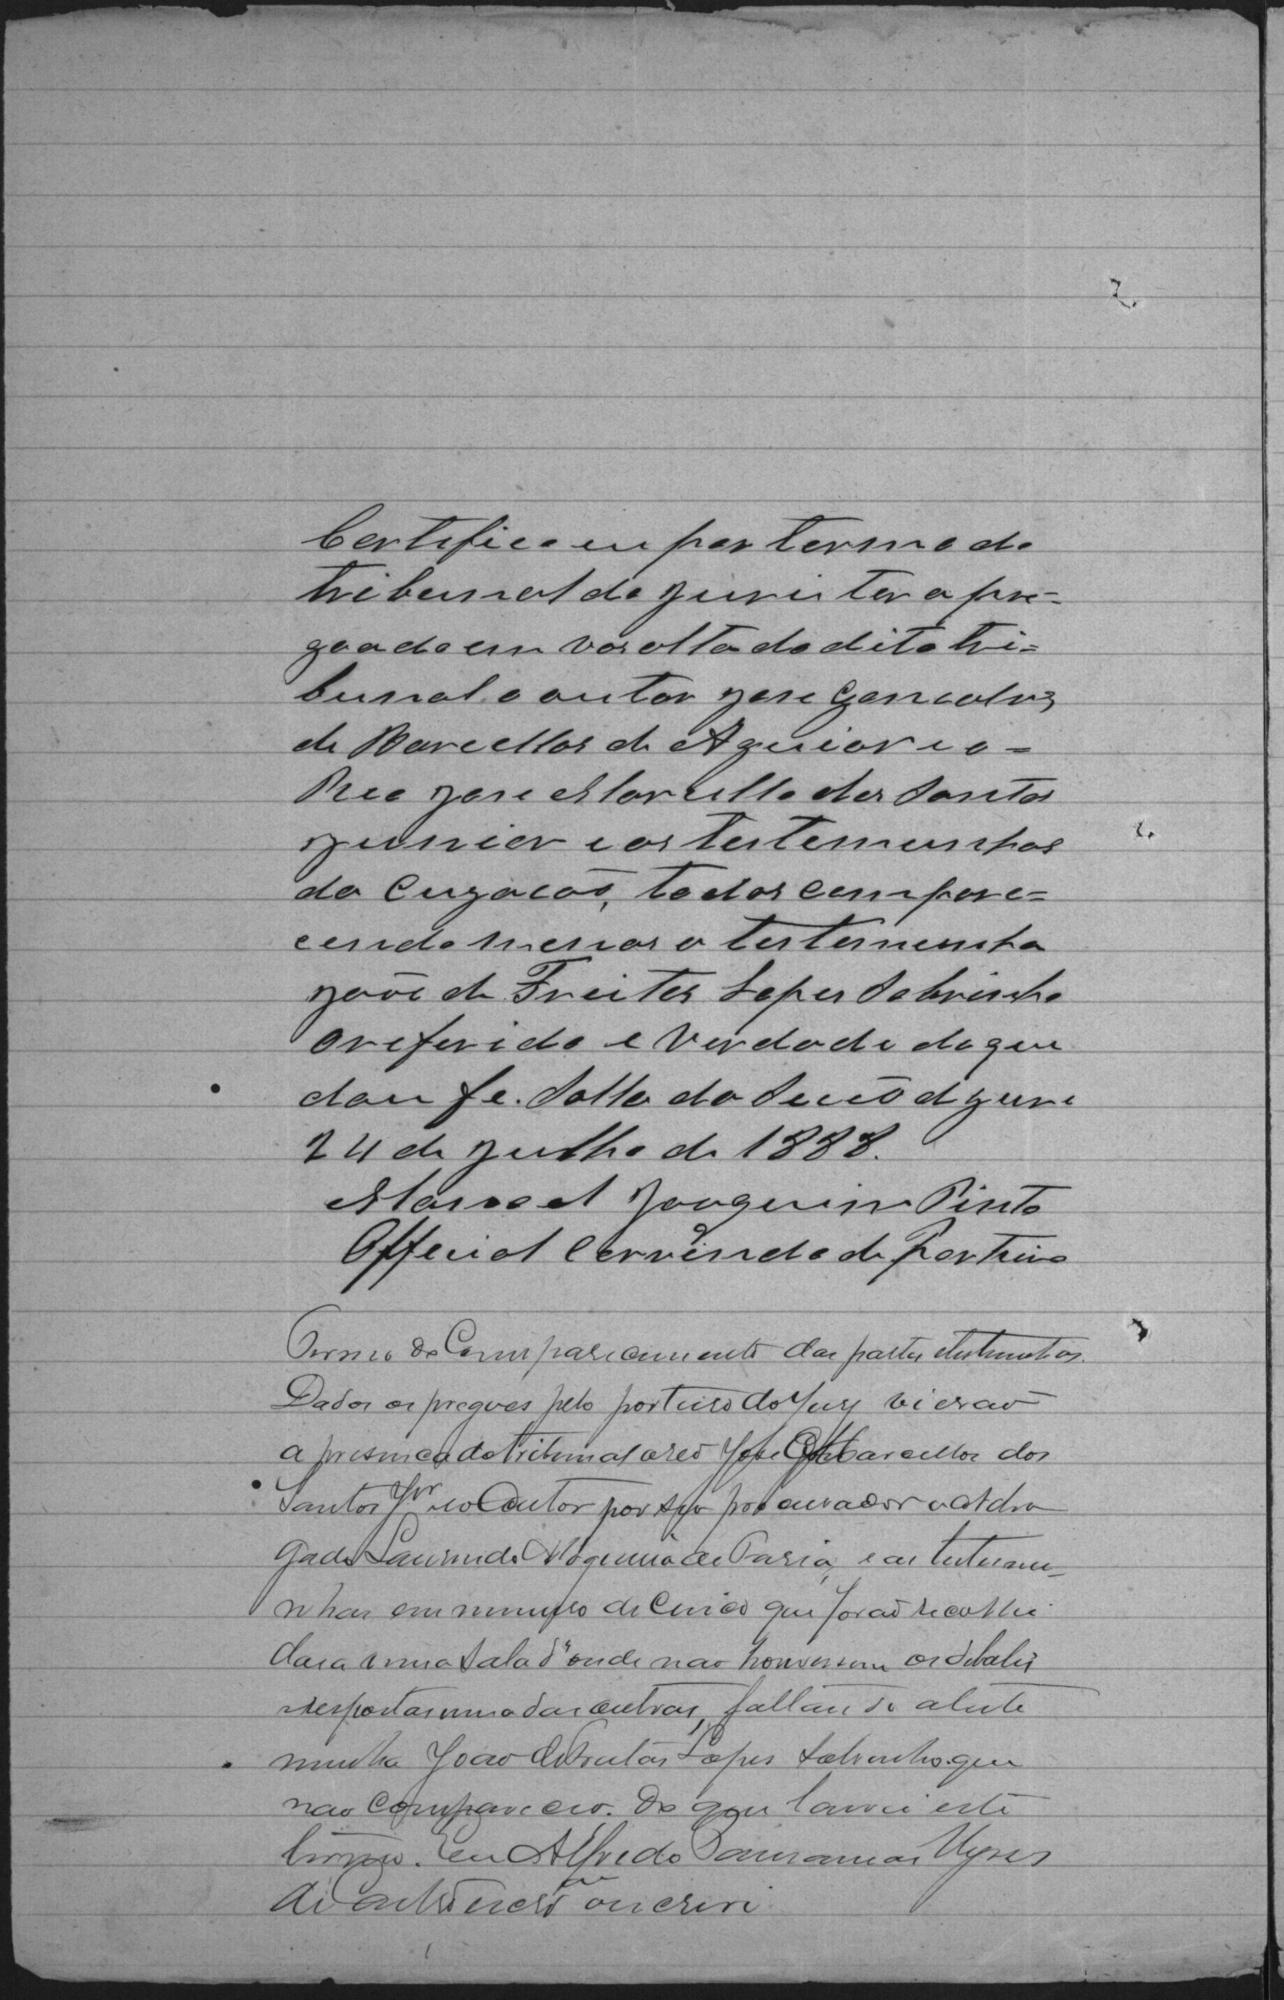 Certifico eu por termo do
tribunal do jury ter apre=
goado em vos alta do dito tri=
bunal o autor José Gonçalves
de Barcellos de Aguiar e o=
Reo José Marcello dos Santos
Junior e as testemunhas
da cuzacaõ, todos compare=
cendo menos a testemunha
Joaõ de Freitas Lopes Sobrinho
o referido e verdade do que
dou fe. Salla da Secaõ d jury
24 de Julho de 1888.
Manoel Joaquim Pinto
Official servindo de Porteiro
Termo de Comparecimento das partes e testemunhas.
Dados os pregoes pelo porteiro do Jury vieraõ
a presença do tribunal o reo José Barcellos dos
Santos Jor e o Autor por seu procurador o Advo
gado Laurindo Nogueira de Faria, e as testemu=
nhas em numero de cinco que foraõ recolhi
das a uma sala d'onde nao houvessem os debates
respostas umas das outras, faltando a teste
munha Joao de Freitas Lopes Sobrinho que
nao compareceo. Do que lavrei este
termo. Eu Alfredo Ulysses
de Castro escrivaõ o escrevi